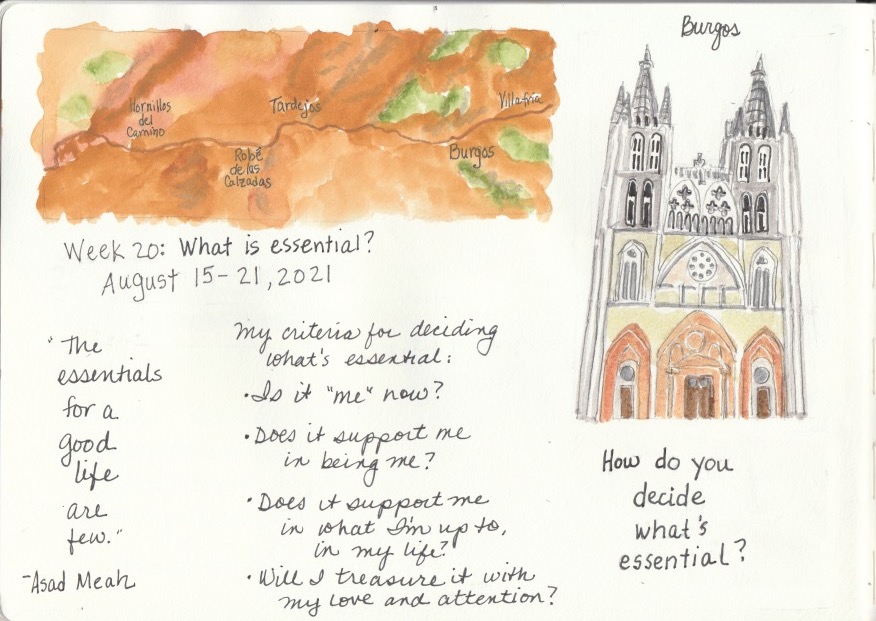 Hornillos
del
Camino
Tardejos
Villafria
Robé
de las
Calzadas
Burgos
Week 20: What is essential?
August 15-21, 2021
"The
essentials
for a
good
life
are
few."
-Asad Meah
My criteria for deciding
what's essential:
• Is it "me" now?
• Does it support me
in being me?
• Does it support me
in what I'm up to,
in my life?
• Will I treasure it with
my love and attention?
Burgos
How do you
decide
what's
essential?